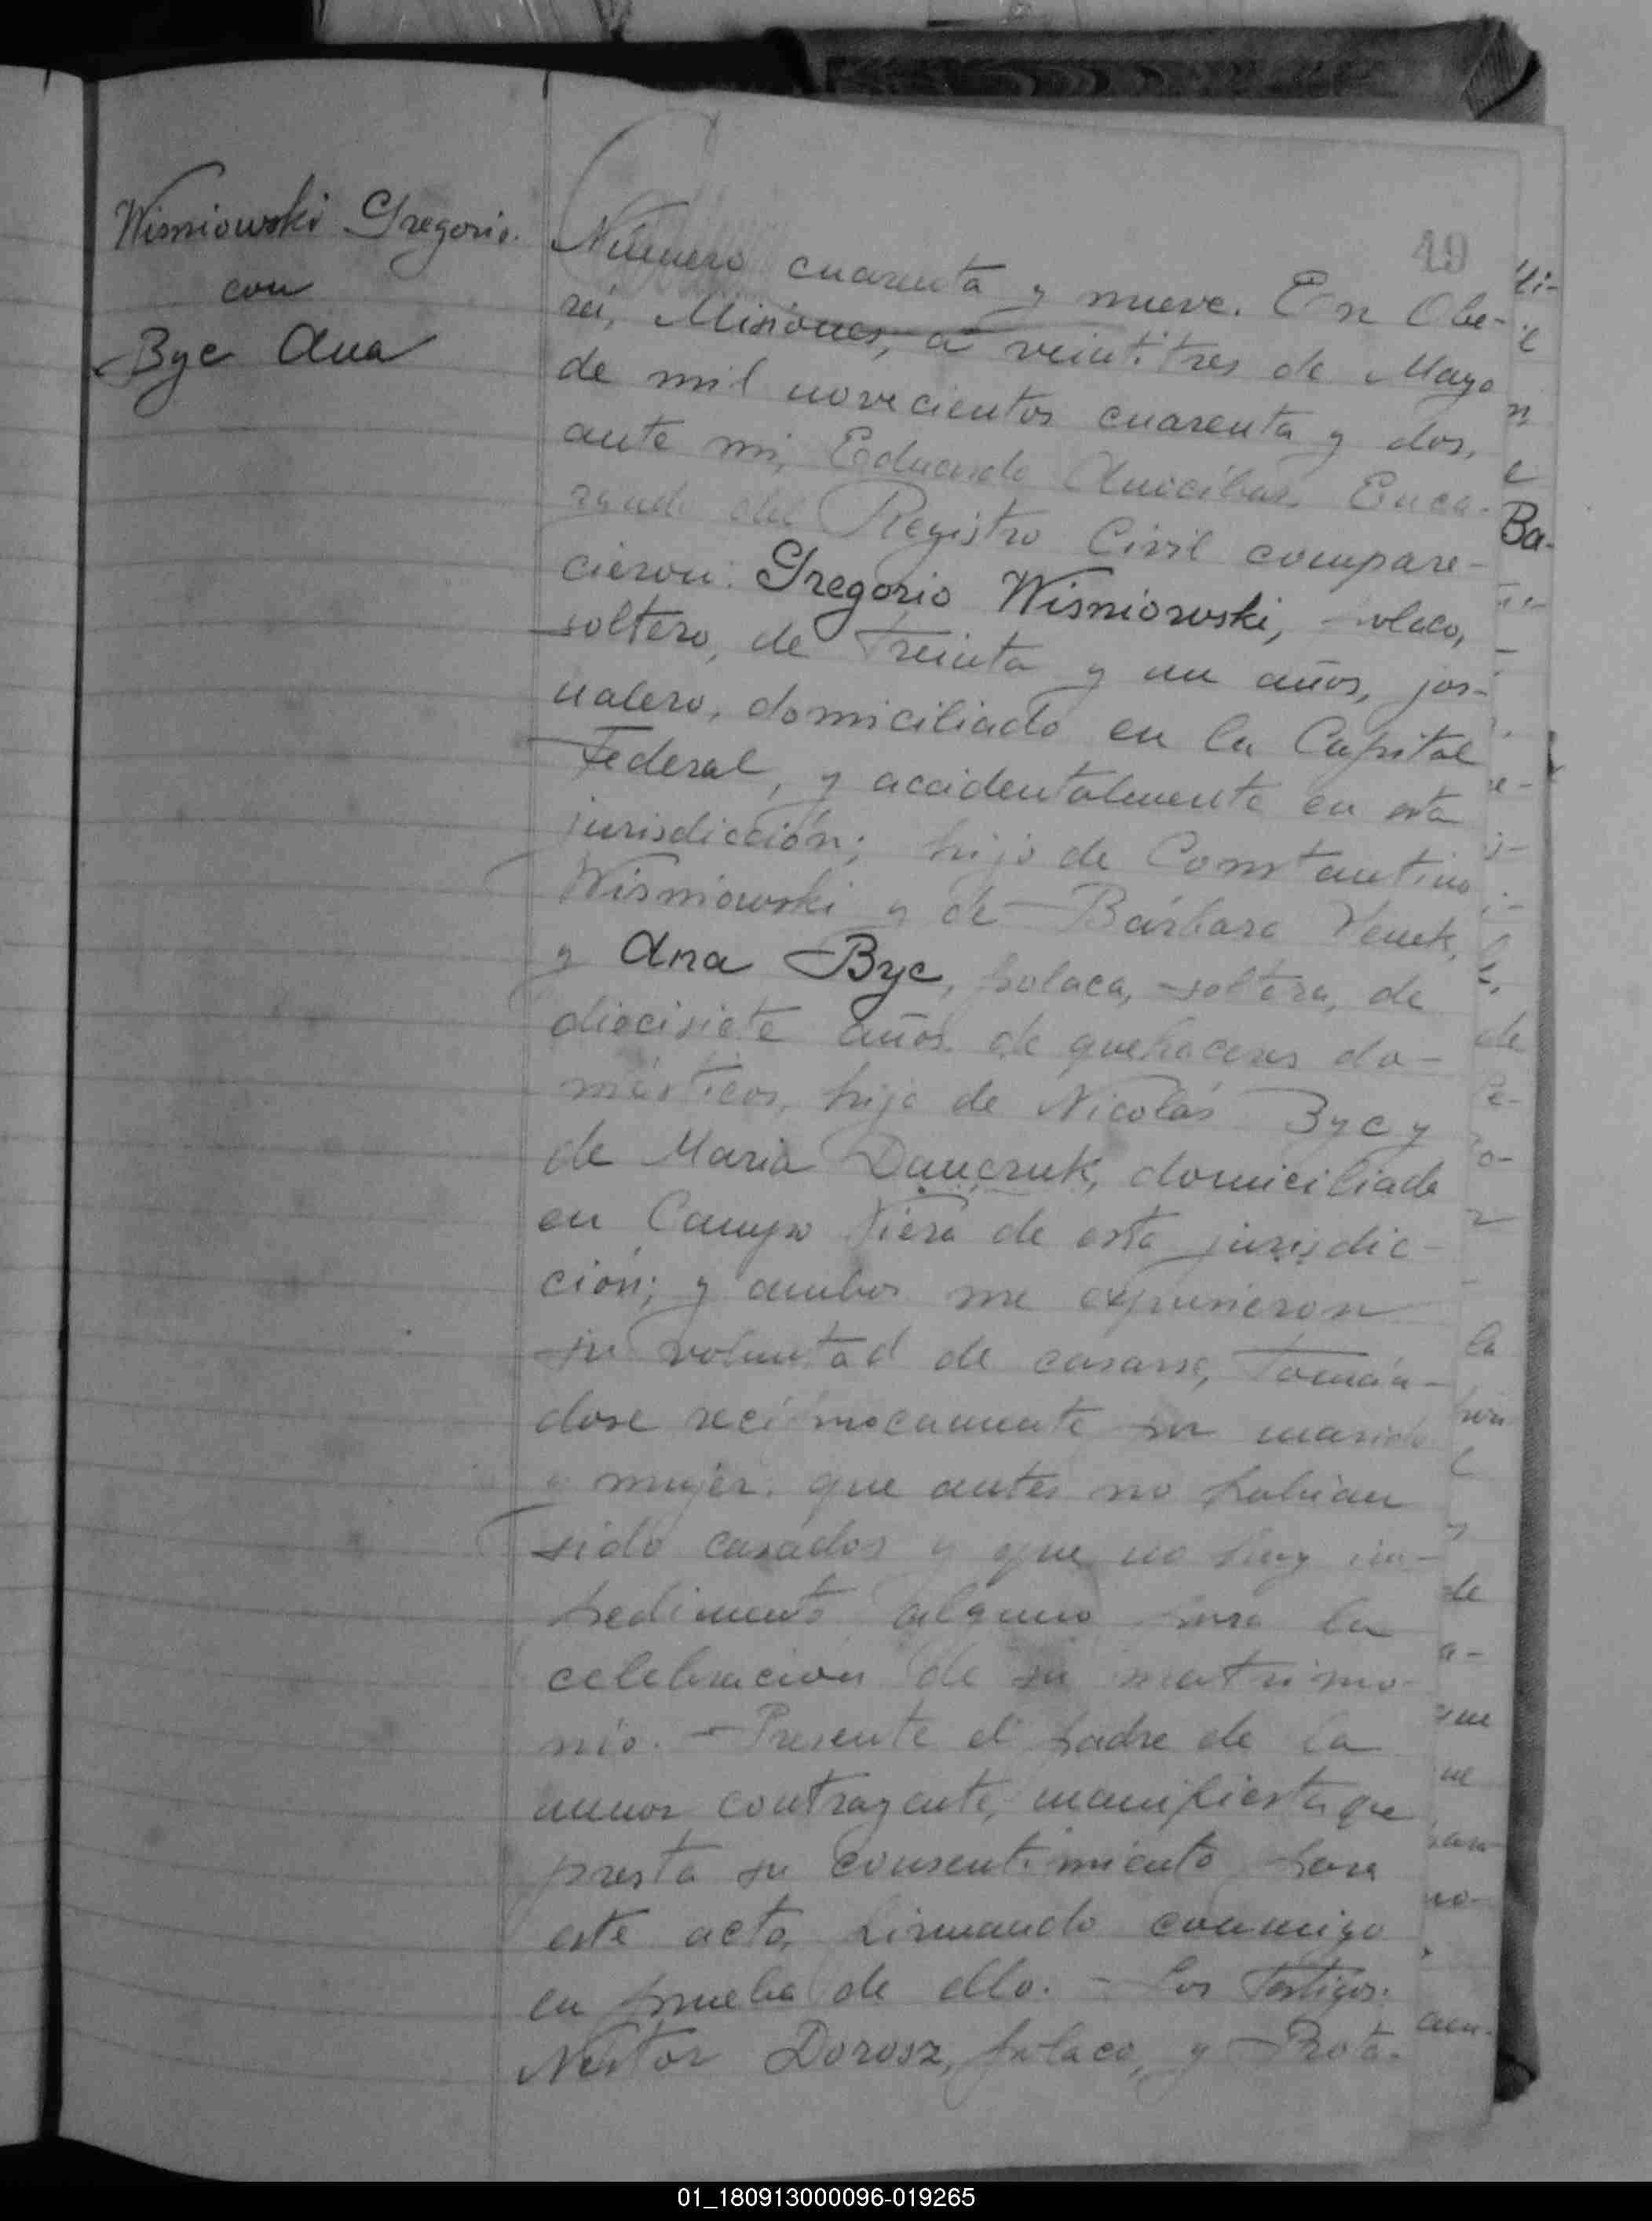 Wisniowski Gregorio.
con
Byc Ana
49
Número cuarenta y nueve. En Obe-
rá, Misiones, a veintitres de Mayo
de mil novecientos cuarenta y dos,
ante mi, Eduardo Encar-
gado del Registro Civil compare-
cieron: Gregorio Wisniowski, polaco,
soltero, de treinta y un años, jor-
nalero, domiciliado en la Capital
Federal, y accidentalmente en esta
jurisdicción; hijo de Constantino
Wisniowski y de Bárbara
y Ana Byc, polaca, soltera, de
diecisiete años, de quehaceres do-
mésticos, hija de Nicolás Byc y
de Maria Danczuk, domiciliada
en Campo Viera de esta jurisdic-
ción; y ambos me expusieron
su voluntad de casarse, tomán-
dose recíprocamente por marido
y mujer, que antes no habian
sido casados y que no hay im-
pedimento alguno para la
celebración de su matrimo-
nio. - Presente el padre de la
menor contrayente, manifiesta que
presta su consentimiento para
este acto, firmando conmigo
en prueba de ello. - Los testigos:
Nestor Dorosz, polaco, y Prota-
Ba-
de
la
de
que
01_180913000096-019265